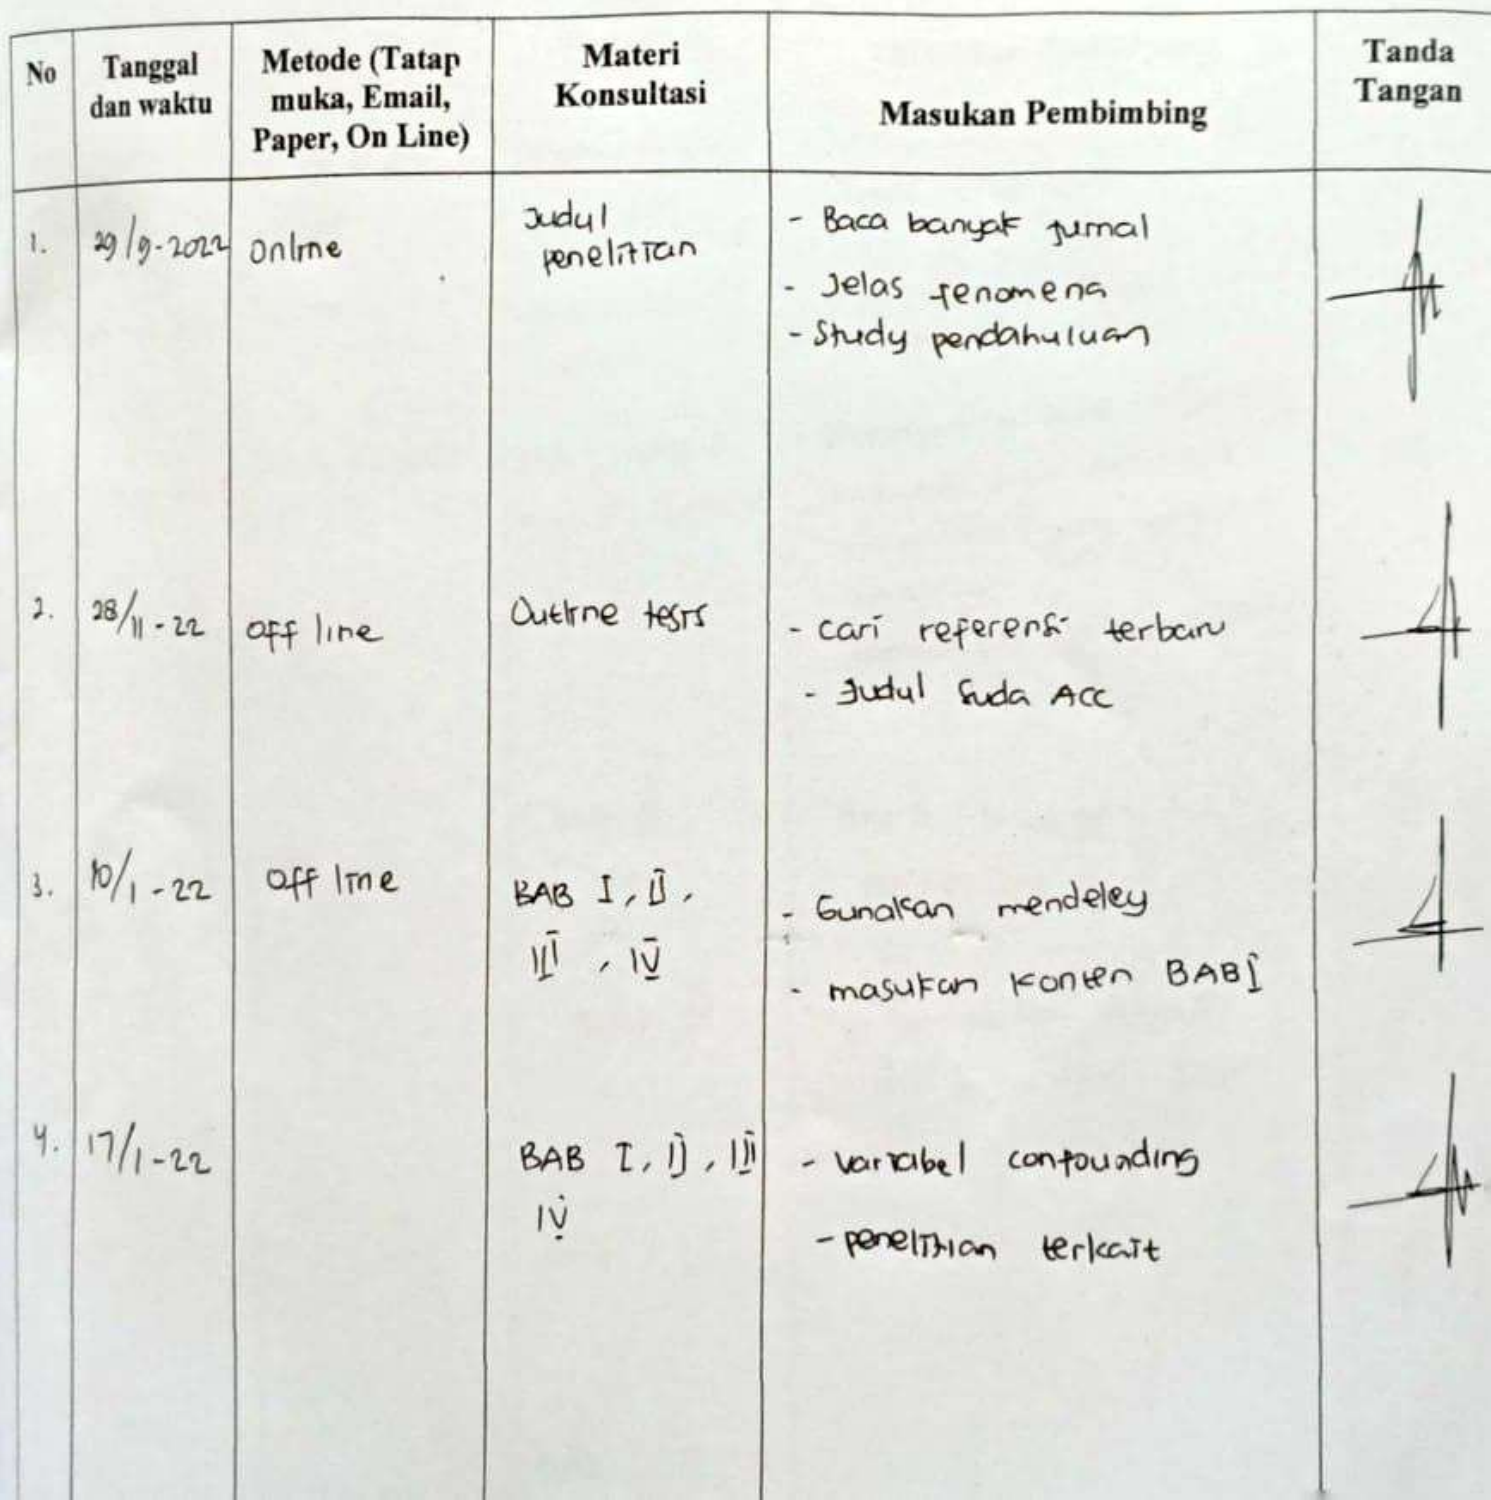 No
Tanggal
dan waktu
Metode (Tatap
muka, Email,
Paper, On Line)
Materi
Konsultasi
Masukan Pembimbing
Tanda
Tangan
1.
29/9-2022
Online
Judul
penelitian
- Baca banyak jurnal
- Jelas fenomena
- Study pendahuluan
2.
28/11-22
Off line
Outline tesis
- cari referensi terbaru
- Judul suda ACC
3.
10/1-22
Off line
BAB I, II,
III, IV
- Gunakan mendeley
- masukan konten BAB I
4.
17/1-22
BAB I, II, III
IV
- variabel confounding
- penelitian terkait